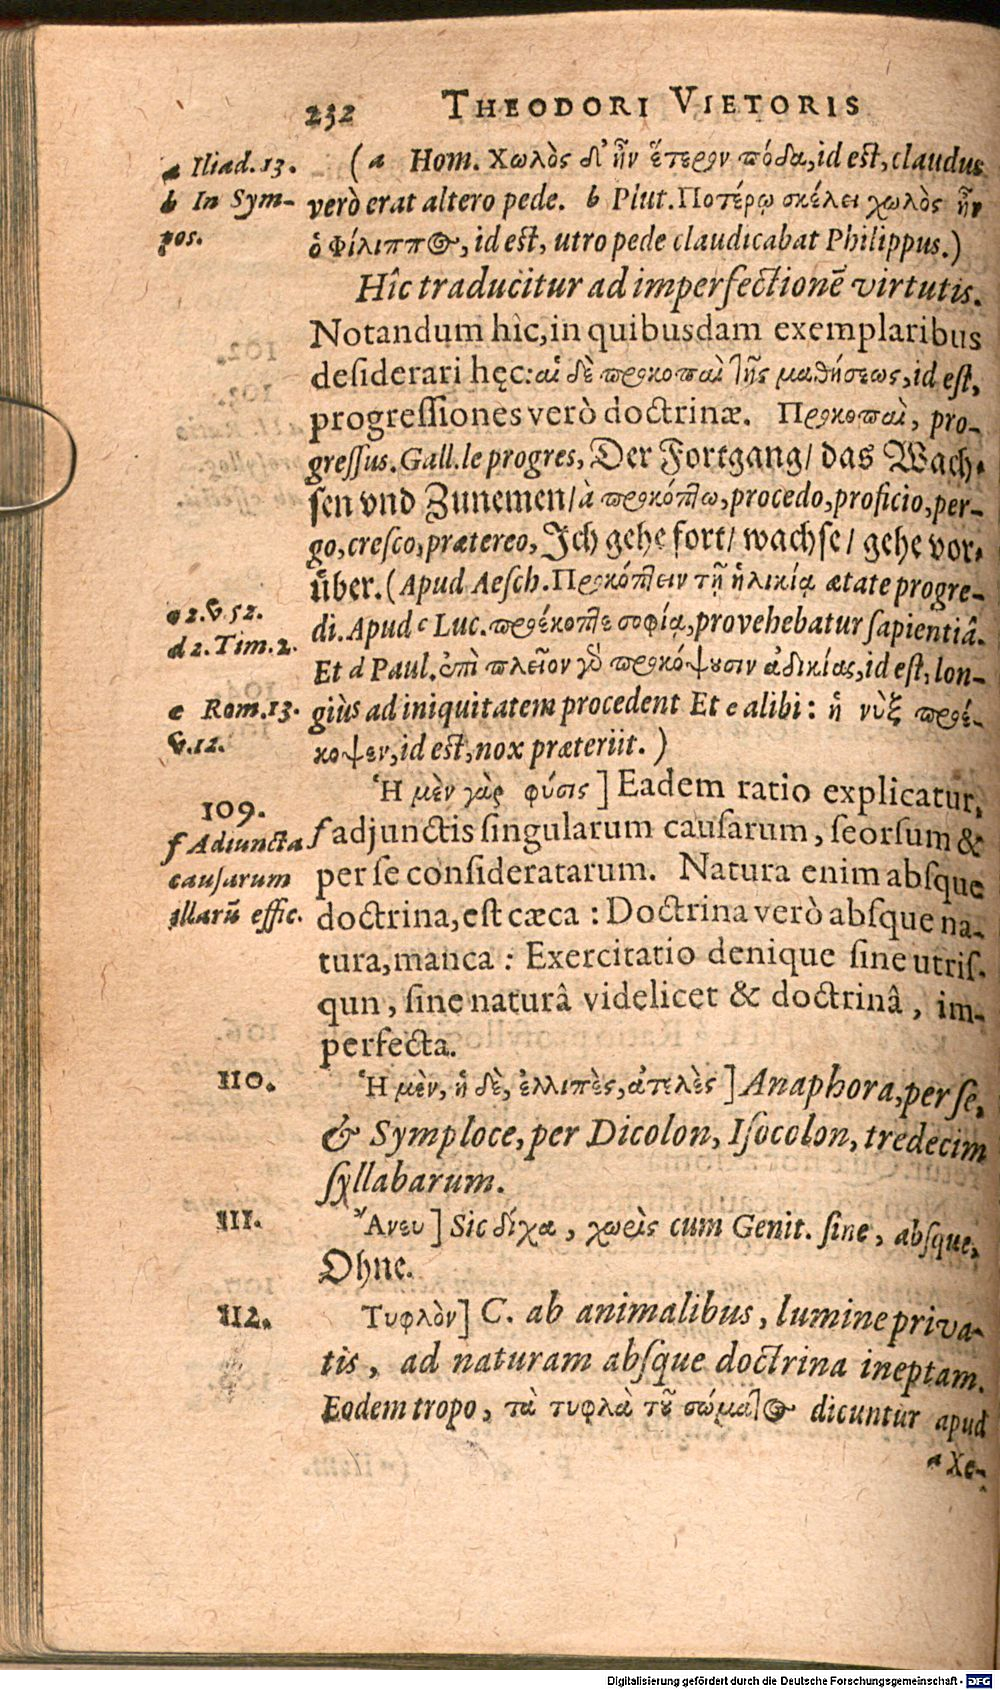 232 THEODORI VIETORIS
a Iliad. 13.
b In Sym-
pos.
(a Hom. Χωλὸς δ' ἦν ἕτερον πόδα, id est, claudus
verò erat altero pede. b Plut. Ποτέρῳ σκέλει χωλὸς ἦν
ὁ Φίλιππος, id est, utro pede claudicabat Philippus.)
Hîc traducitur ad imperfectionē virtutis.
Notandum hîc, in quibusdam exemplaribus
desiderari hęc: αἱ δὲ προκοπαὶ τῆς μαθήσεως, id est,
progressiones verò doctrinæ. Προκοπαὶ, pro-
gressus. Gall. le progres, Der Fortgang/ das Wach-
sen vnd Zunemen/ à προκόπτω, procedo, proficio, per-
go, cresco, prætereo, Ich gehe fort/ wachse/ gehe vor-
über. (Apud Aesch. Προκόπτειν τῇ ἡλικίᾳ ætate progre-
c 2. v. 52.
d 2. Tim. 2.
di. Apud c Luc. προέκοπτε σοφίᾳ, provehebatur sapientiâ.
Et d Paul. ἐπὶ πλεῖον γὸ προκόψουσιν ἀδικίας, id est, lon-
e Rom. 13.
v. 12.
giùs ad iniquitatem procedent Et e alibi: ἡ νὺξ προέ-
κοψεν, id est, nox præteriit. )
Ἡ μὲν γὰρ φύσις ] Eadem ratio explicatur,
109.
f Adiuncta
causarum
illarū effic.
f adjunctis singularum causarum, seorsum &
per se consideratarum. Natura enim absque
doctrina, est cæca : Doctrina verò absque na-
tura, manca : Exercitatio denique sine utris-
qun, sine naturâ videlicet & doctrinâ, im-
perfecta.
110.
Ἡ μὲν, ἡ δὲ, ἐλλιπὲς, ἀτελὲς ] Anaphora, per se,
& Symploce, per Dicolon, Isocolon, tredecim
syllabarum.
111.
Ἄνευ ] Sic δίχα, χωρὶς cum Genit. sine, absque,
Ohne.
112.
Τυφλὸν] C. ab animalibus, lumine priva-
tis, ad naturam absque doctrina ineptam.
Eodem tropo, τὰ τυφλὰ τοῦ σώματος dicuntur apud
a Xe-
Digitalisierung gefördert durch die Deutsche Forschungsgemeinschaft - DFG